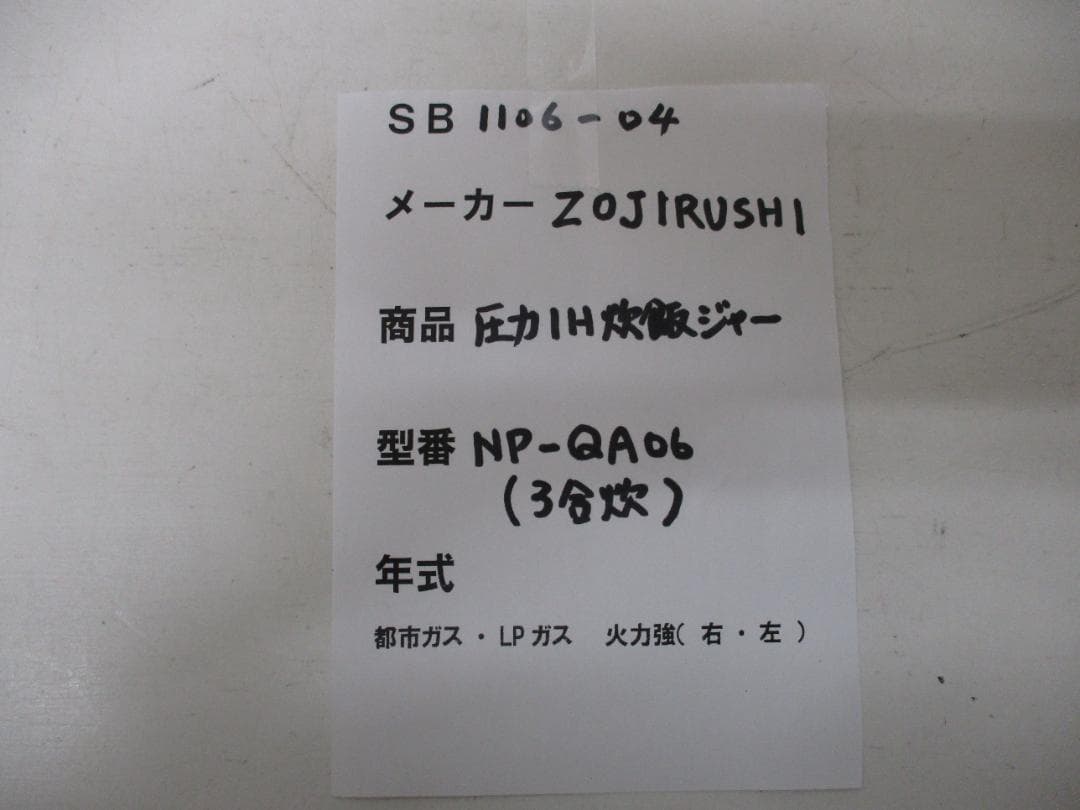 SB 1106-04
メーカー ZOJIRUSHI
商品 圧力IH炊飯ジャー
型番 NP-QA06
(3合炊)
年式
都市ガス・LPガス 火力強( 右・左 )